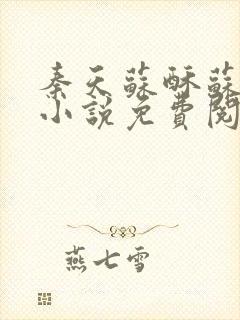 秦天蘇酥蘇
小說免費閱
燕七雪